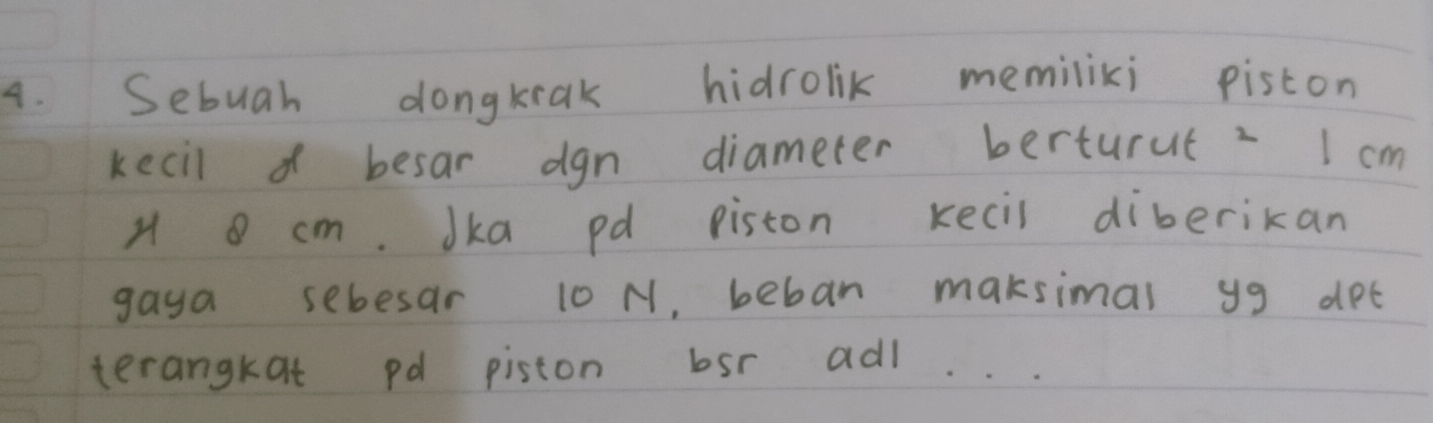 4. Sebuah dongkrak hidrolik memiliki piston
kecil & besar dgn diameter berturut ² 1 cm
& 8 cm. Jka pd piston kecil diberikan
gaya sebesar 10 N, beban maksimal yg dpt
terangkat pd piston bsr adl ...